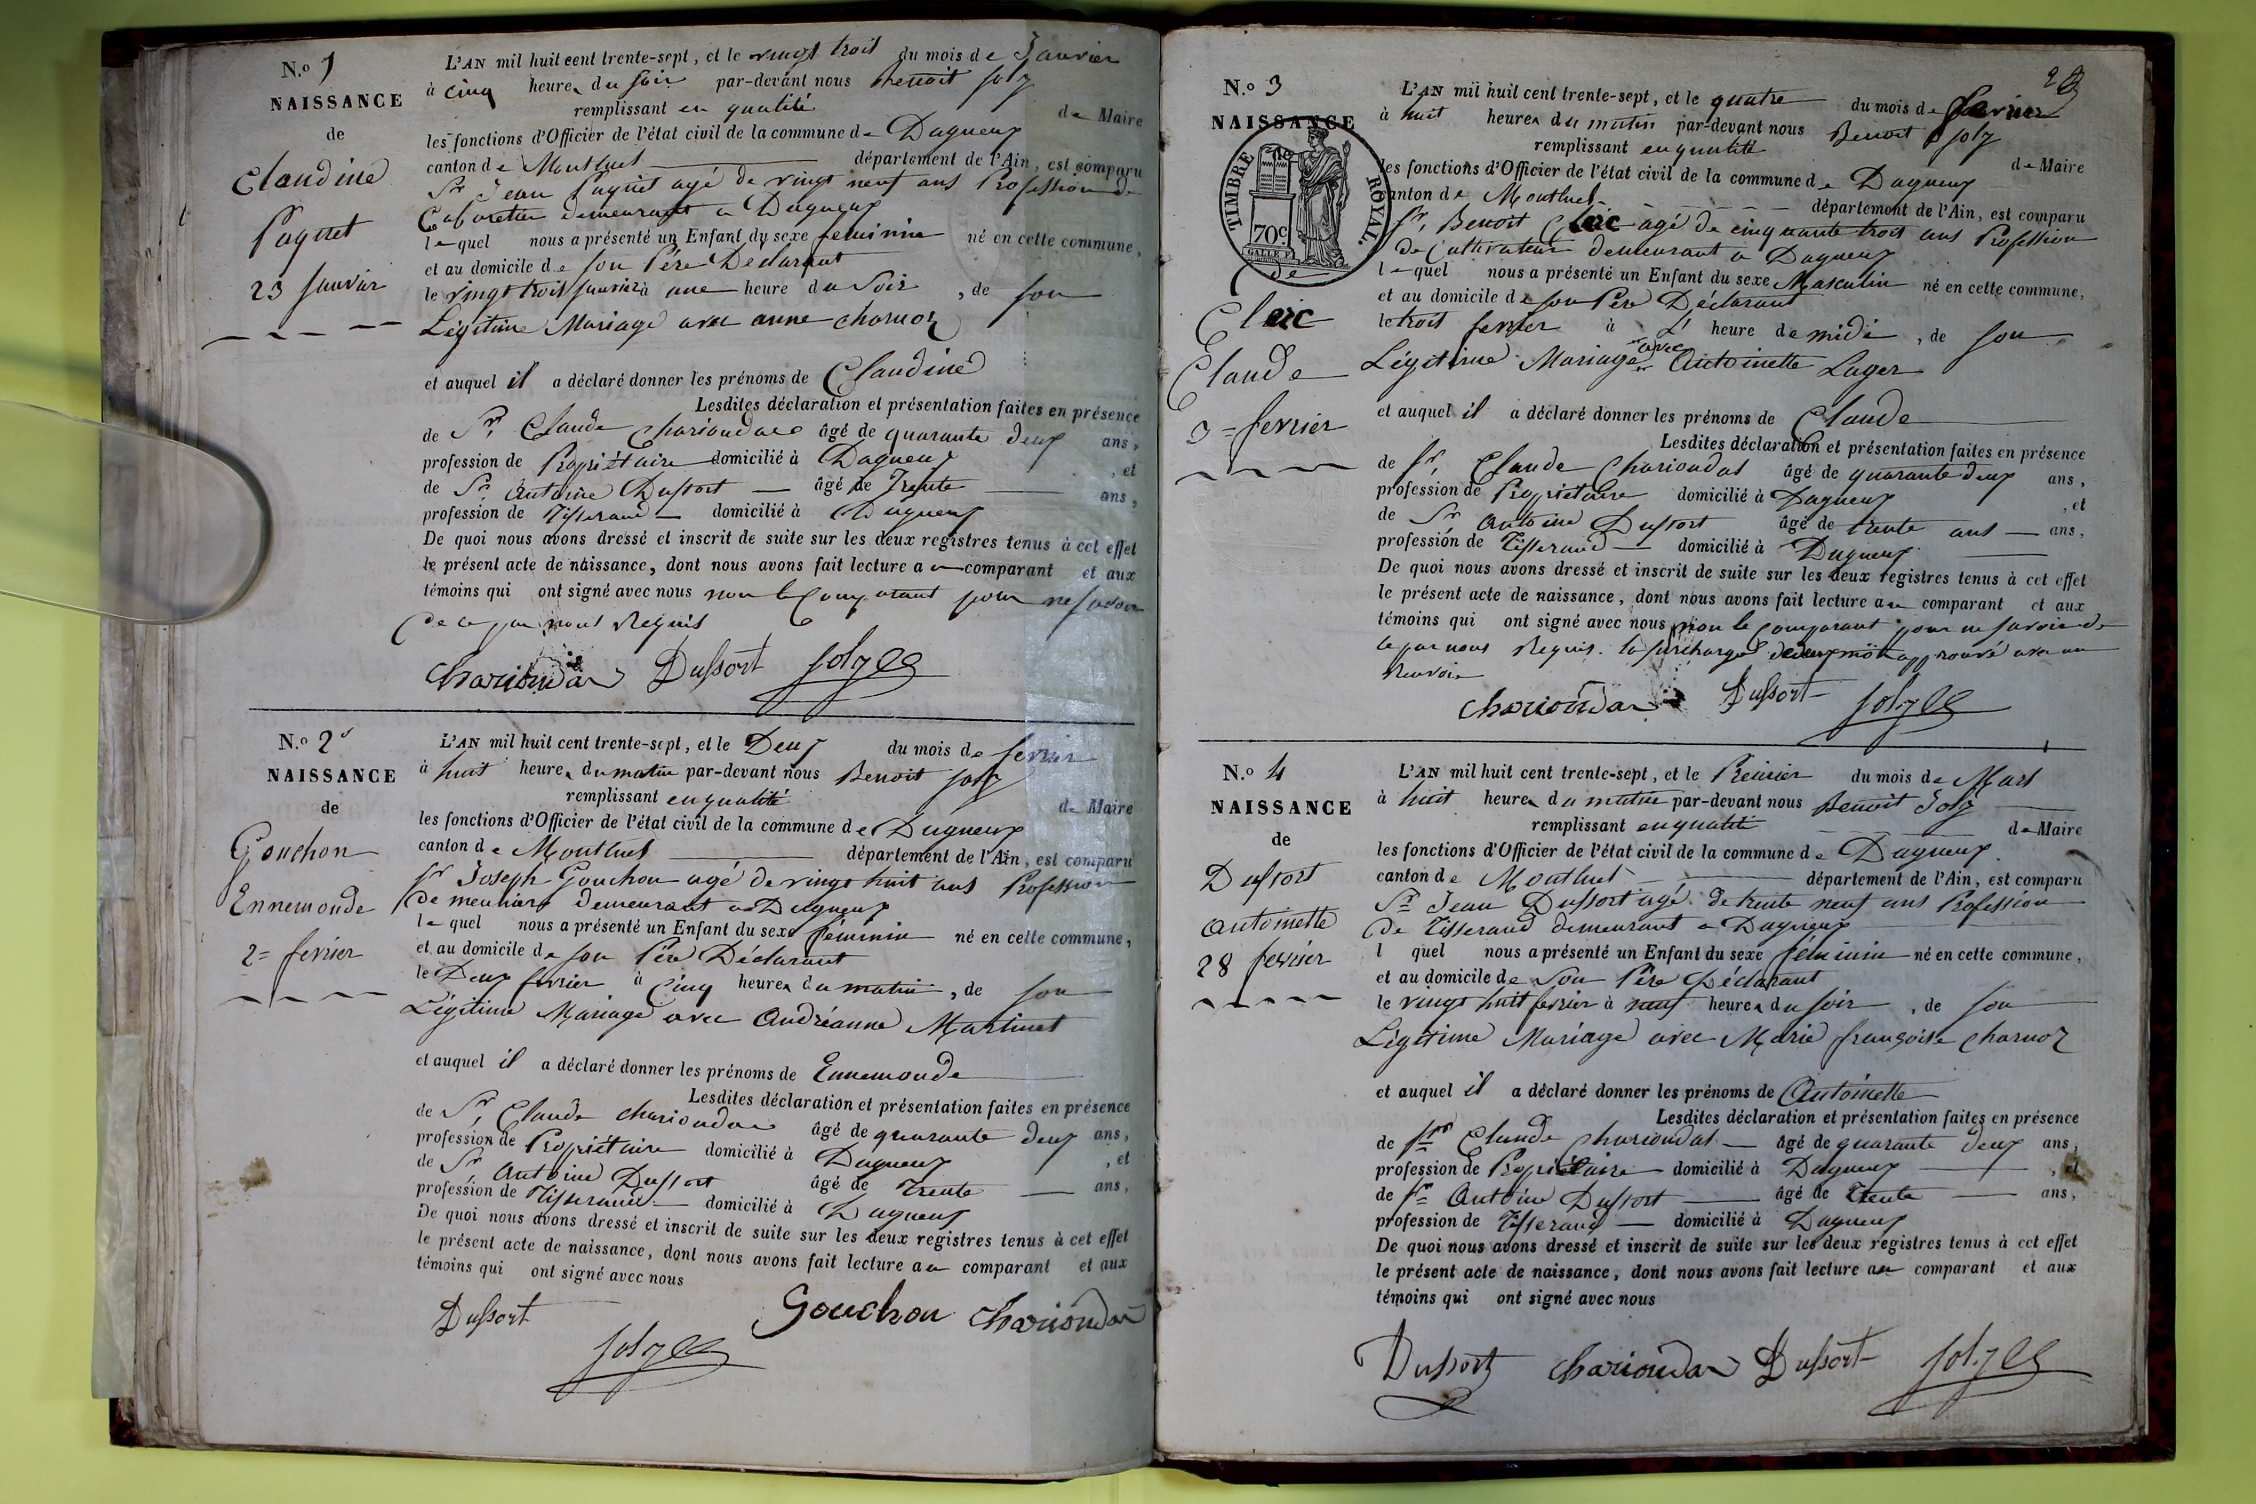 N.o 1
NAISSANCE
de
Claudine
Paquet
23 Janvier
L'AN mil huit cent trente-sept, et le vingt trois du mois de Janvier
à cinq heures du soir par-devant nous Benoit Joly
remplissant en qualité de Maire
les fonctions d'Officier de l'état civil de la commune de Dagneux
canton de Montluel département de l'Ain, est comparu
Sr Jean Paquet agé de vingt neuf ans Profession de
Cabaretier demeurant a Dagneux
lequel nous a présenté un Enfant du sexe feminin né en cette commune,
et au domicile de son Père Déclarant
le vingt trois Janvier à une heure du Soir, de son
Légitime Mariage avec anne charnoz
et auquel il a déclaré donner les prénoms de Claudine
Lesdites déclaration et présentation faites en présence
de Sr Claude Chariondas âgé de quarante deux ans,
profession de Propriétaire domicilié à Dagneux, et
de Sr Antoine Dussort âgé de Trente ans,
profession de Tisserand domicilié à Dagneux
De quoi nous avons dressé et inscrit de suite sur les deux registres tenus à cet effet
le présent acte de naissance, dont nous avons fait lecture au comparant et aux
témoins qui ont signé avec nous non le Comparant pour ne savoir
de ce par nous Requis
chariondas Dussort Joly
N.o 2
NAISSANCE
de
Gouchon
Ennemonde
2= fevrier
L'AN mil huit cent trente-sept, et le Deux du mois de fevrier
à huit heures du matin par-devant nous Benoit Joly
remplissant en qualité de Maire
les fonctions d'Officier de l'état civil de la commune de Dagneux
canton de Montluel département de l'Ain, est comparu
Sr Joseph Gouchon agé de vingt huit ans Profession
De meunier demeurant a Dagneux
lequel nous a présenté un Enfant du sexe féminin né en cette commune,
et au domicile de son Père Déclarant
le Deux fevrier à Cinq heures du matin, de son
Légitime Mariage avec Andréanne Martinet
et auquel il a déclaré donner les prénoms de Ennemonde
Lesdites déclaration et présentation faites en présence
de Sr Claude chariondas âgé de quarante deux ans,
profession de Propriétaire domicilié à Dagneux, et
de Sr Antoine Dussort âgé de Trente ans,
profession de Tisserand domicilié à Dagneux
De quoi nous avons dressé et inscrit de suite sur les deux registres tenus à cet effet
le présent acte de naissance, dont nous avons fait lecture au comparant et aux
témoins qui ont signé avec nous
Dussort Gouchon chariondas
Joly
N.o 3
NAISSANCE
de
TIMBRE ROYAL.
70c
Clerc
Claude
3= fevrier
L'AN mil huit cent trente-sept, et le quatre du mois de fevrier
à huit heures du matin par-devant nous Benoit Joly
remplissant en qualité de Maire
les fonctions d'Officier de l'état civil de la commune de Dagneux
canton de Montluel département de l'Ain, est comparu
Sr Benoit Clerc agé de cinquante trois ans Profession
de Cultivateur demeurant a Dagneux
lequel nous a présenté un Enfant du sexe Masculin né en cette commune,
et au domicile de son Père Déclarant
le trois fevrier à L' heure de midi, de son
Légitime Mariage avec Antoinette Lager
et auquel il a déclaré donner les prénoms de Claude
Lesdites déclaration et présentation faites en présence
de Sr Claude Chariondas âgé de quarante deux ans,
profession de Propriétaire domicilié à Dagneux, et
de Sr Antoine Dussort âgé de trente ans ans,
profession de Tisserand domicilié à Dagneux
De quoi nous avons dressé et inscrit de suite sur les deux registres tenus à cet effet
le présent acte de naissance, dont nous avons fait lecture au comparant et aux
témoins qui ont signé avec nous non le Comparant pour ne savoir de
ce par nous Requis. la surcharge approuvé avec un
Renvoi
chariondas Dussort Joly
N.o 4
NAISSANCE
de
Dussort
Antoinette
28 fevrier
L'AN mil huit cent trente-sept, et le Premier du mois de Mars
à huit heures du matin par-devant nous Benoit Joly
remplissant en qualité de Maire
les fonctions d'Officier de l'état civil de la commune de Dagneux
canton de Montluel département de l'Ain, est comparu
Sr Jean Dussort agé de trente neuf ans Profession
De Tisserand demeurant a Dagneux
l quel nous a présenté un Enfant du sexe féminin né en cette commune,
et au domicile de Son Père Déclarant
le vingt huit fevrier à neuf heures du soir, de son
Légitime Mariage avec Marie françoise charnoz
et auquel il a déclaré donner les prénoms de Antoinette
Lesdites déclaration et présentation faites en présence
de Sr Claude Chariondas âgé de quarante deux ans,
profession de Propriétaire domicilié à Dagneux, et
de Sr Antoine Dussort âgé de trente ans,
profession de Tisserand domicilié à Dagneux
De quoi nous avons dressé et inscrit de suite sur les deux registres tenus à cet effet
le présent acte de naissance, dont nous avons fait lecture au comparant et aux
témoins qui ont signé avec nous
Dussort chariondas Dussort Joly